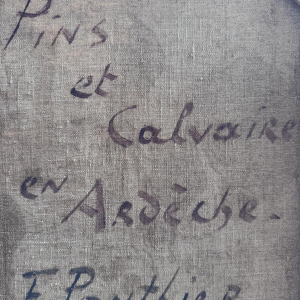 Pins
et
Calvaire
en
Ardèche.
F.